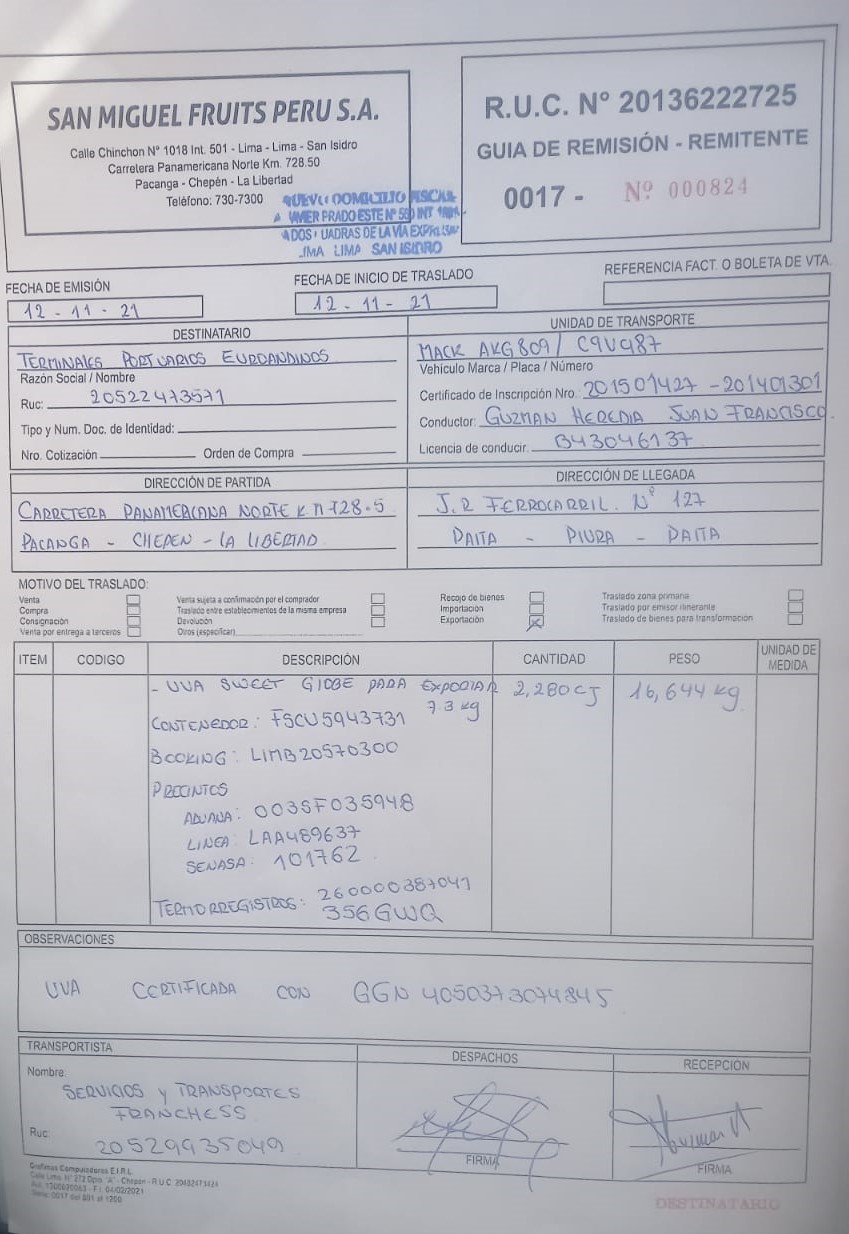 SAN MIGUEL FRUITS PERU S.A.
Calle Chinchon N° 1018 Int. 501 - Lima - Lima - San Isidro
Carretera Panamericana Norte Km. 728.50
Pacanga - Chepén - La Libertad
Teléfono: 730-7300
NUEVO DOMICILIO FISCAL
JAVIER PRADO ESTE N° 560 INT
A DOS CUADRAS DE LA VIA EXPRESA
LIMA LIMA SAN ISIDRO
R.U.C. N° 20136222725
GUIA DE REMISIÓN - REMITENTE
0017 - Nº 000824
FECHA DE EMISIÓN
12 - 11 - 21
FECHA DE INICIO DE TRASLADO
12 - 11 - 21
REFERENCIA FACT. O BOLETA DE VTA.
DESTINATARIO
TERMINALES PORTUARIOS EUROANDINOS
Razón Social / Nombre
Ruc: 20522473571
Tipo y Num. Doc. de Identidad:
Nro. Cotización Orden de Compra
UNIDAD DE TRANSPORTE
MACK AKG809 / C9U987
Vehículo Marca / Placa / Número
Certificado de Inscripción Nro. 201501427 - 201401301
Conductor: GUZMAN HEREDIA JUAN FRANCISCO.
Licencia de conducir. B43046137
DIRECCIÓN DE PARTIDA
CARRETERA PANAMERICANA NORTE KM 728.5
PACANGA - CHEPEN - LA LIBERTAD
DIRECCIÓN DE LLEGADA
J.R FERROCARRIL. N° 127
PAITA - PIURA - PAITA
MOTIVO DEL TRASLADO:
Venta
Compra
Consignación
Venta por entrega a terceros
Venta sujeta a confirmación por el comprador
Traslado entre establecimientos de la misma empresa
Devolución
Otros (especificar)
Recojo de bienes
Importación
Exportación X
Traslado zona primaria
Traslado por emisor itinerante
Traslado de bienes para transformación
ITEM CODIGO DESCRIPCIÓN CANTIDAD PESO UNIDAD DE MEDIDA
- UVA SWEET GLOBE PARA EXPORTAR 2,280 CJ 16,644 kg
7.3 kg
CONTENEDOR: FSCU5943731
BOOKING: LIMB20570300
PRECINTOS
ADUANA: 003SF035948
LINEA: LAA489637
SENASA: 101762
TERMORREGISTROS: 260000387041
356GWQ
OBSERVACIONES
UVA CERTIFICADA CON GGN 4050373074845
TRANSPORTISTA
Nombre:
SERVICIOS y TRANSPORTES
FRANCHESS
Ruc: 20529935049
DESPACHOS
FIRMA
RECEPCIÓN
FIRMA
Graficas Computadoras E.I.R.L.
DESTINATARIO